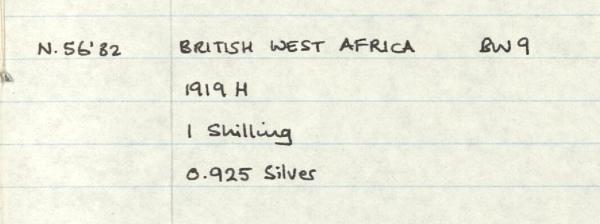 N.56'82 BRITISH WEST AFRICA BW9
1919 H
1 Shilling
0.925 Silver